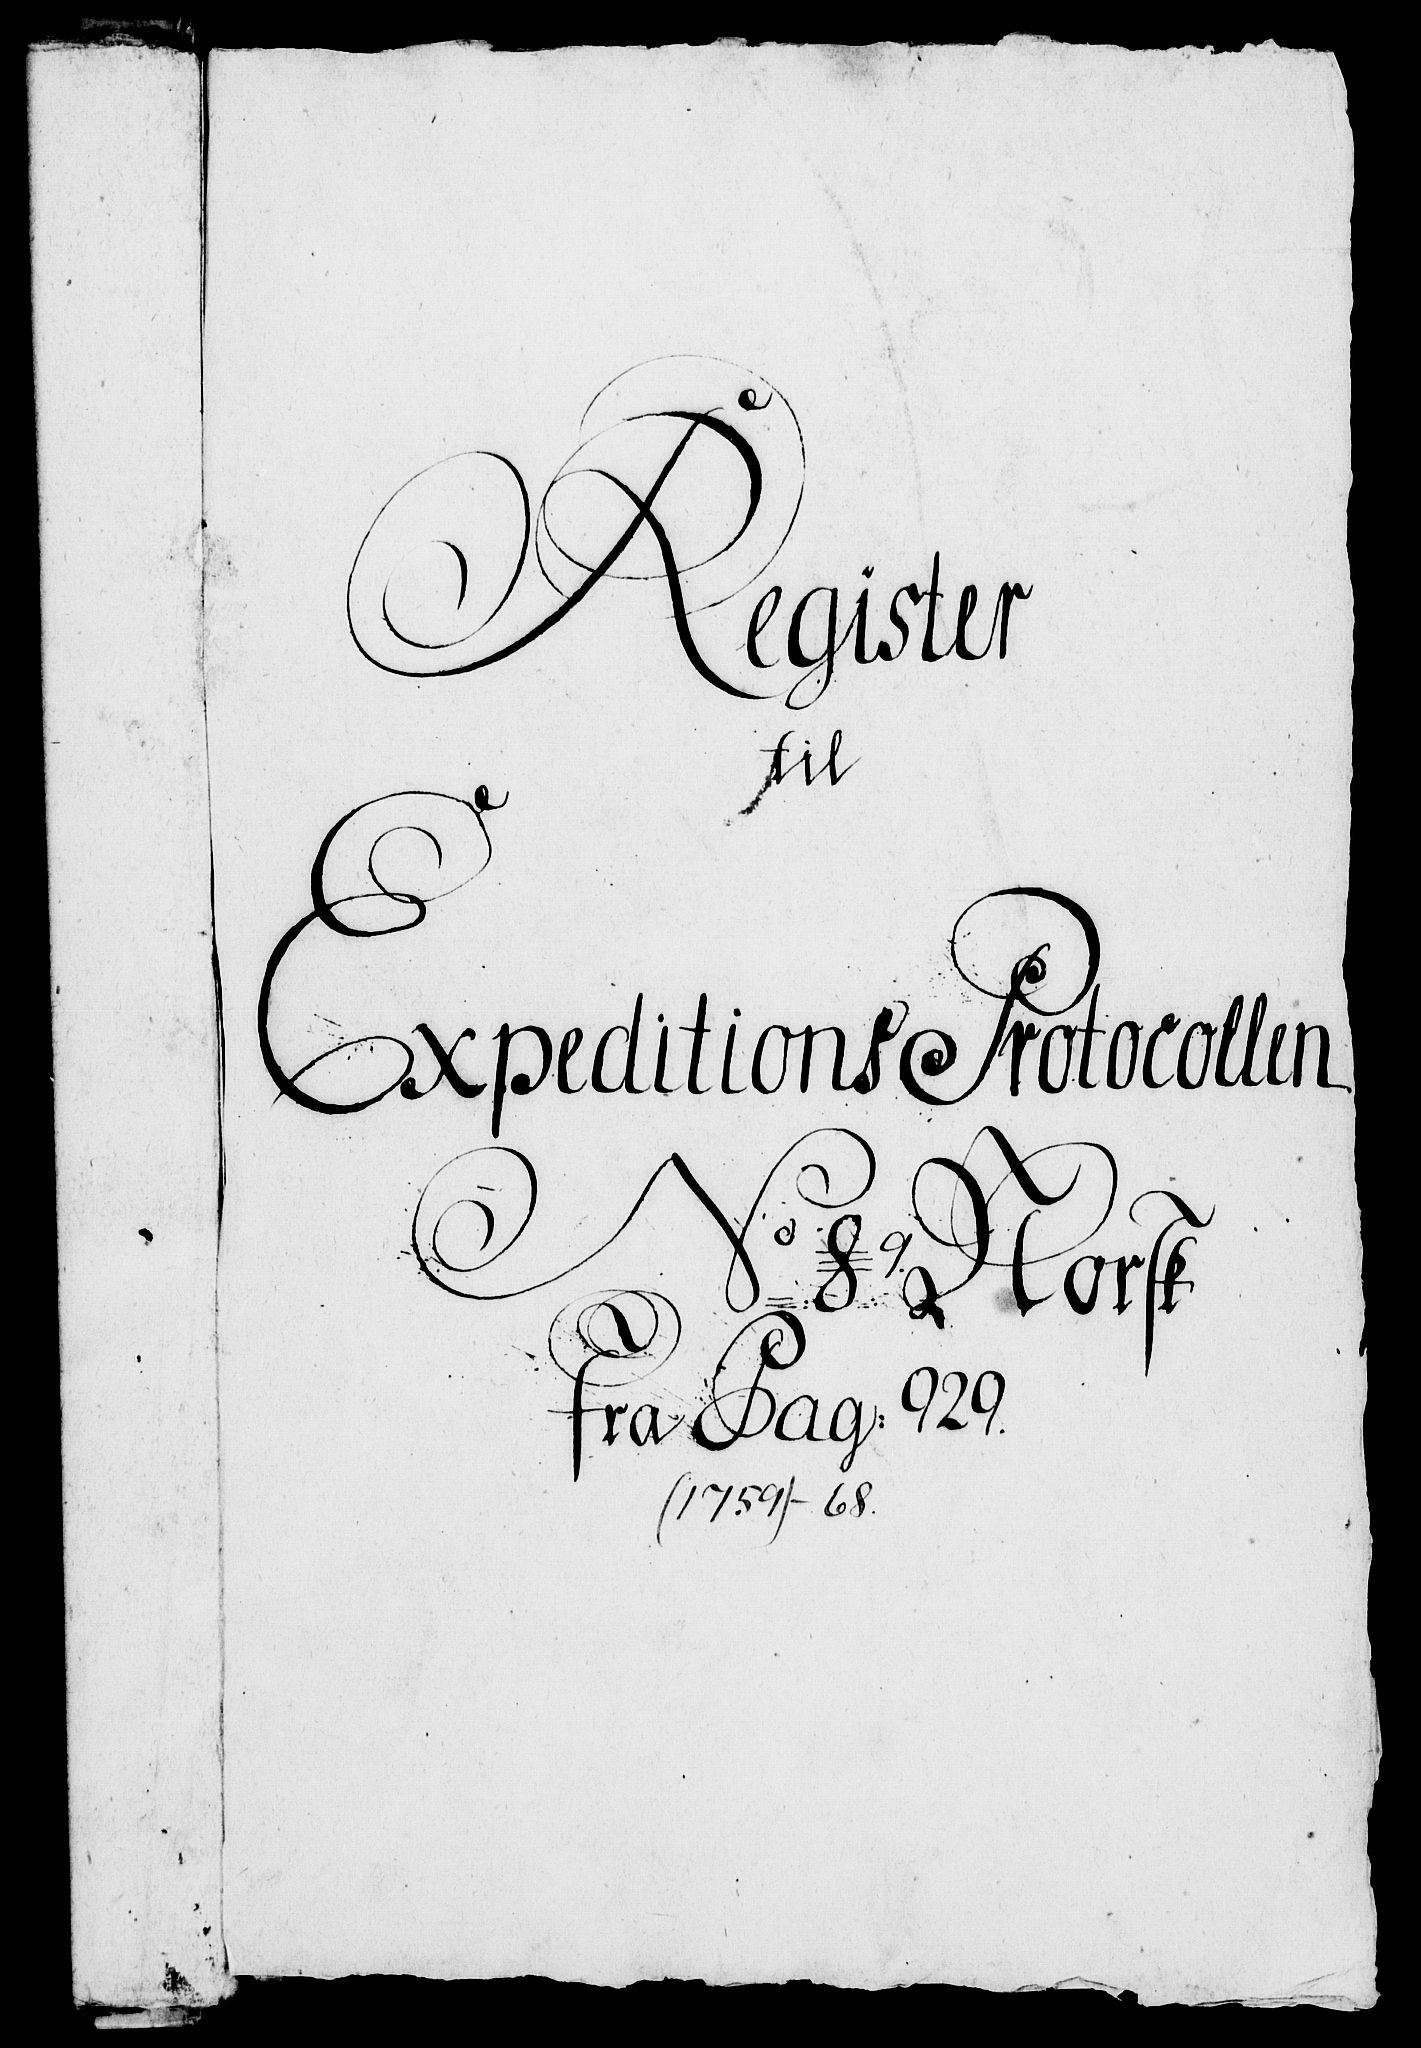 Register
til
Expeditions Protocollen
No 8 9. Norsk
fra Pag: 929.
(1759)- 68.